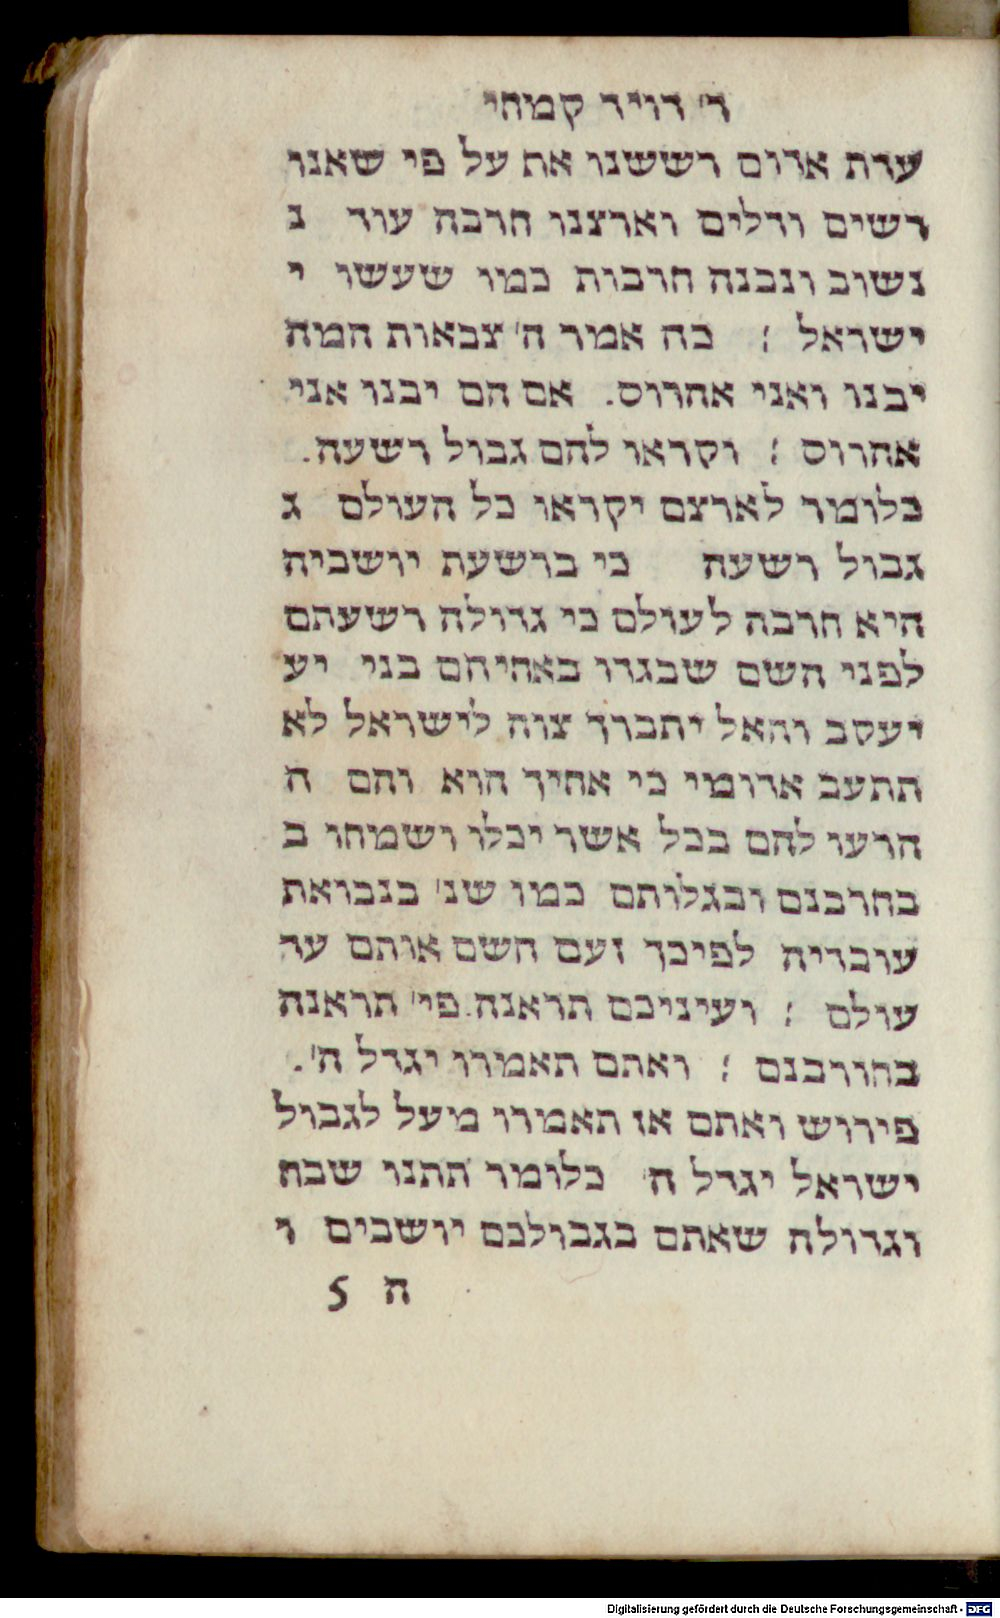 ר׳ דויד קמחי
עדת אדום רששנו את על פי שאנו
רשים ודלים וארצנו חרבה עוד נ
נשוב ונבנה חרבות כמו שעשו י
ישראל : כה אמר ה׳ צבאות המה
יבנו ואני אהרוס. אם הם יבנו אני
אהרוס : וקראו להם גבול רשעה.
כלומר לארצם יקראו כל העולם ג
גבול רשעה כי ברשעת יושביה
היא חרבה לעולם כי גדולה רשעתם
לפני השם שבגדו באחיהם בני יע
יעקב והאל יתברך צוה לישראל לא
תתעב אדומי כי אחיך הוא והם ה
הרעו להם בכל אשר יכלו ושמחו ב
בחרבנם ובגלותם כמו שנ׳ בנבואת
עובדיה לפיכך זעם השם אותם עד
עולם : ועיניכם תראנה. פי׳ תראנה
בחורבנם : ואתם תאמרו יגדל ה׳.
פירוש ואתם אז תאמרו מעל לגבול
ישראל יגדל ה׳ כלומר תתנו שבח
וגדולה שאתם בגבולכם יושבים ו
ה 5
Digitalisierung gefördert durch die Deutsche Forschungsgemeinschaft - DFG